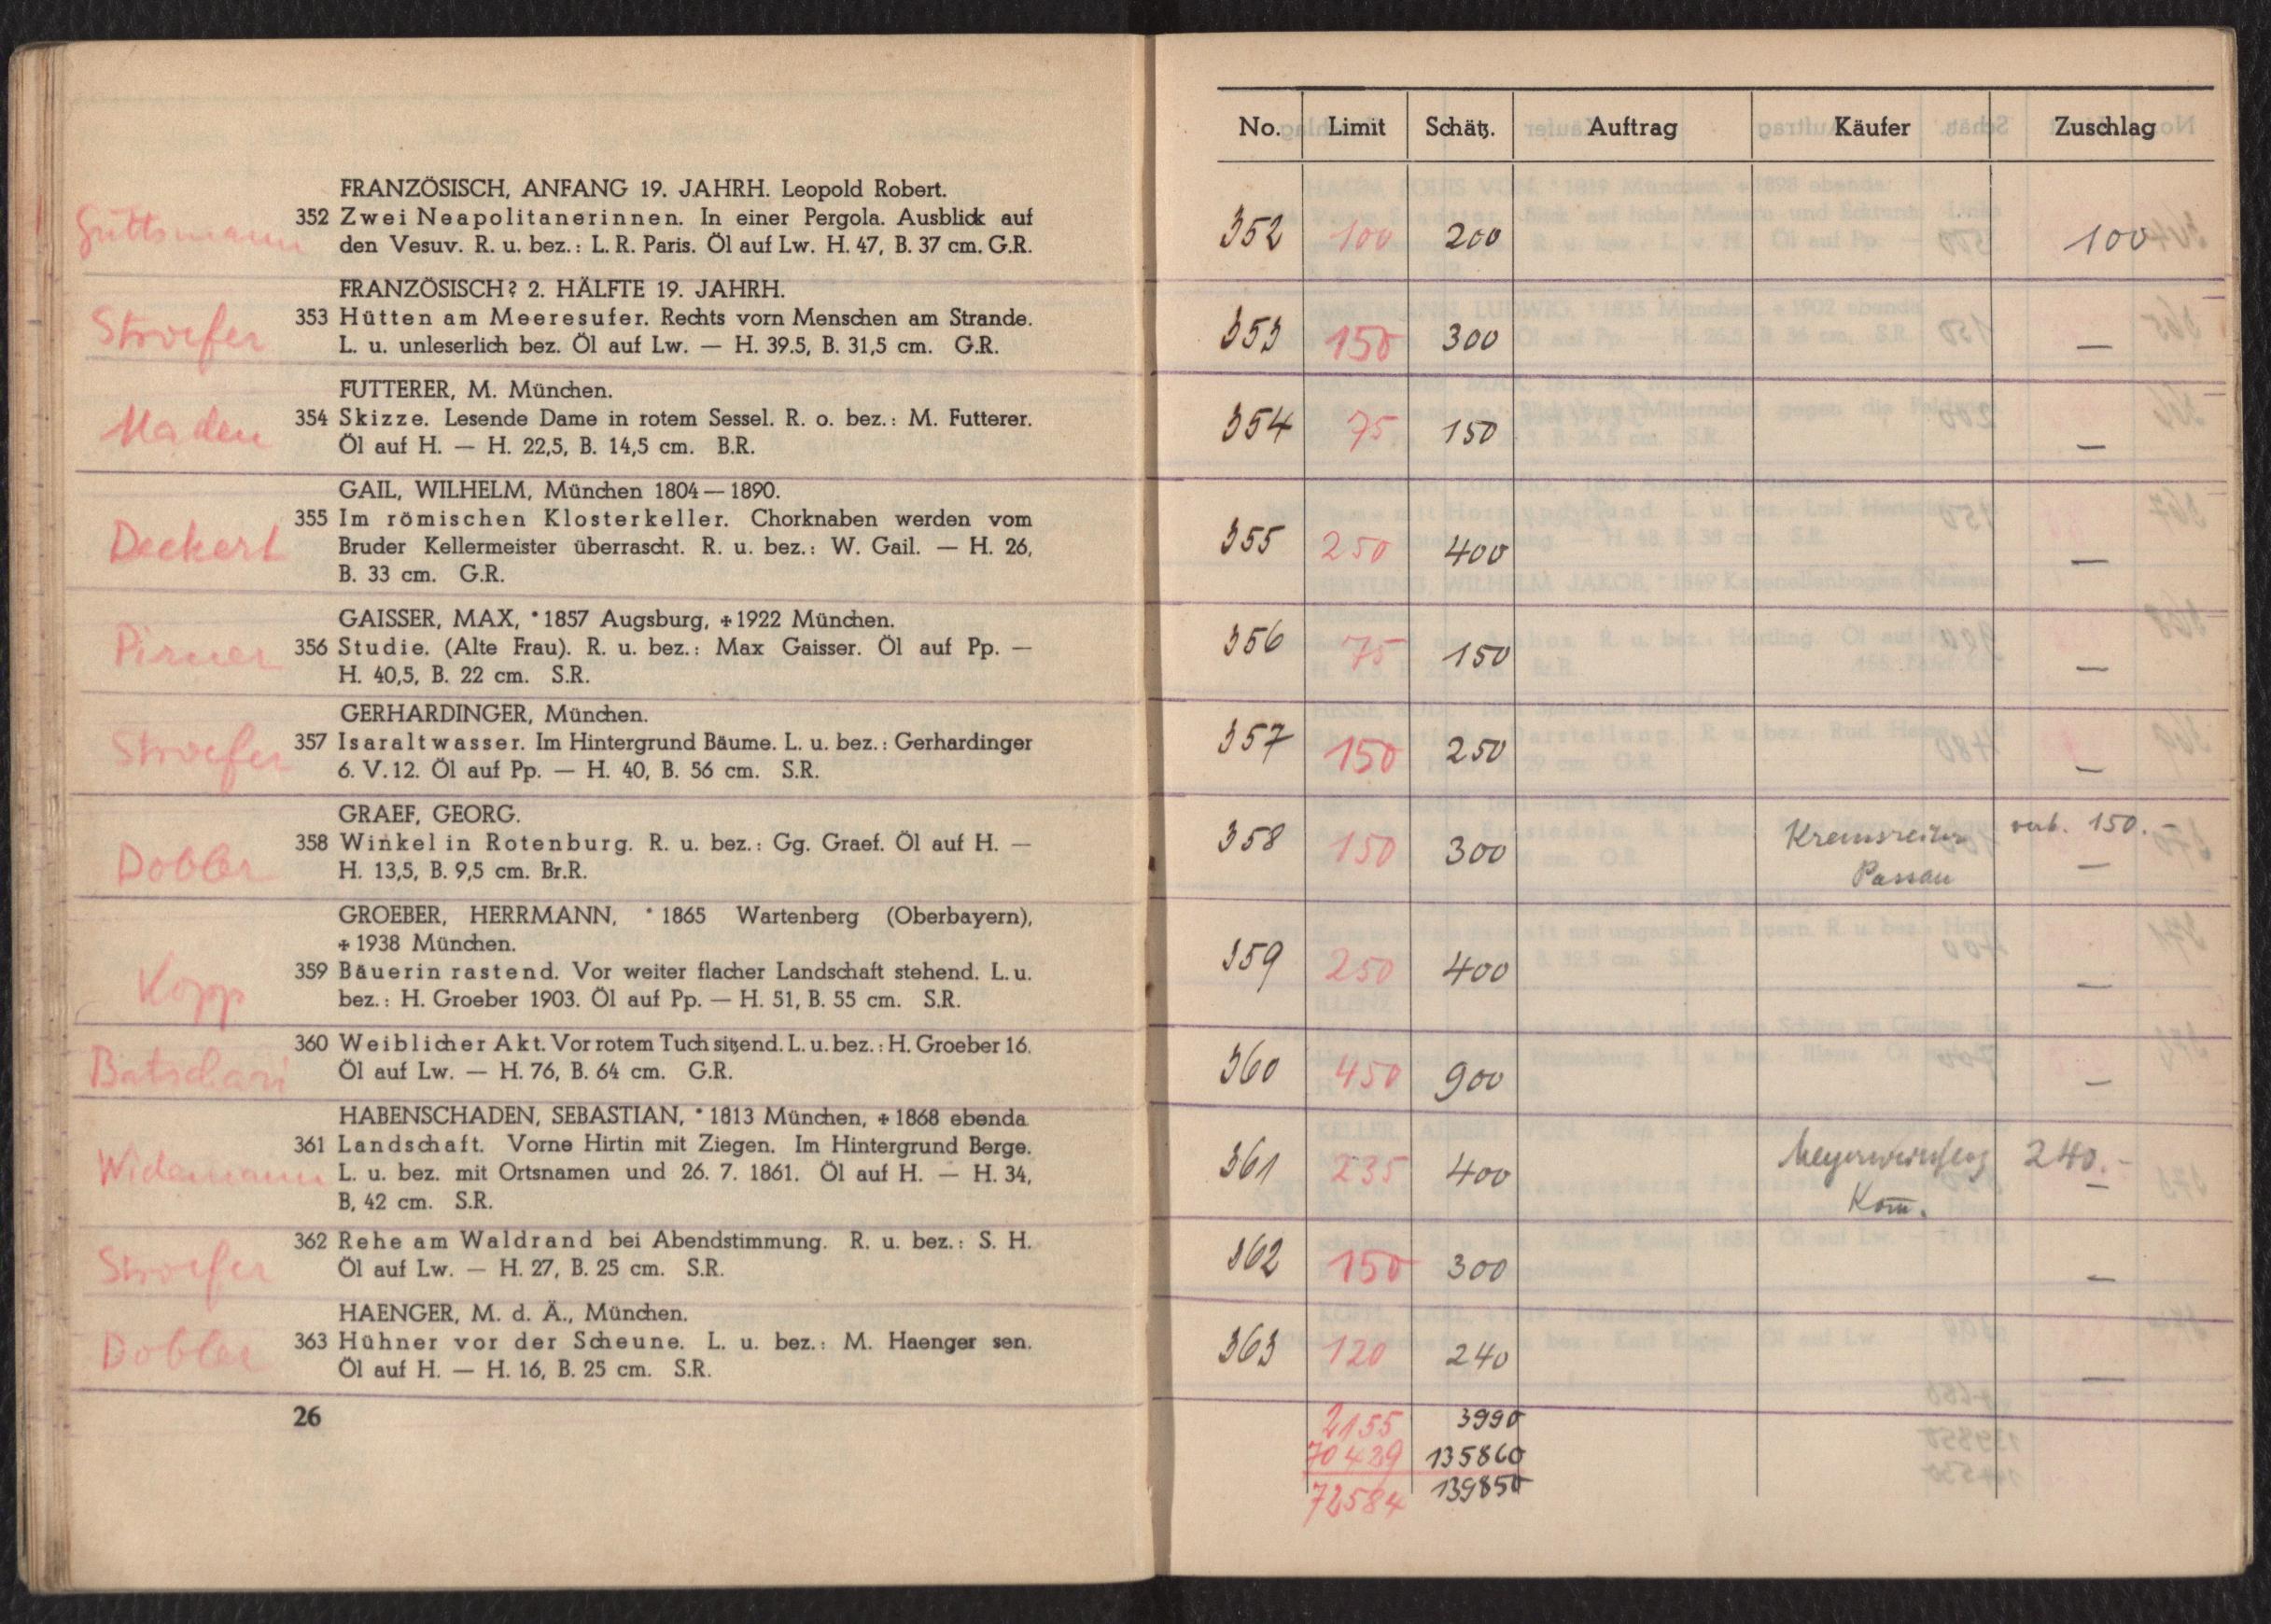 FRANZÖSISCH, ANFANG 19. JAHRH. Leopold Robert.
Guttsmann
352 Zwei Neapolitanerinnen. In einer Pergola. Ausblick auf
den Vesuv. R. u. bez.: L. R. Paris. Öl auf Lw. H. 47, B. 37 cm. G.R.
FRANZÖSISCH? 2. HÄLFTE 19. JAHRH.
Stroefer
353 Hütten am Meeresufer. Rechts vorn Menschen am Strande.
L. u. unleserlich bez. Öl auf Lw. — H. 39.5, B. 31,5 cm. G.R.
FUTTERER, M. München.
Maden
354 Skizze. Lesende Dame in rotem Sessel. R. o. bez.: M. Futterer.
Öl auf H. — H. 22,5, B. 14,5 cm. B.R.
GAIL, WILHELM, München 1804 — 1890.
Deckert
355 Im römischen Klosterkeller. Chorknaben werden vom
Bruder Kellermeister überrascht. R. u. bez.: W. Gail. — H. 26,
B. 33 cm. G.R.
GAISSER, MAX, * 1857 Augsburg, + 1922 München.
Pirner
356 Studie. (Alte Frau). R. u. bez.: Max Gaisser. Öl auf Pp. —
H. 40,5, B. 22 cm. S.R.
GERHARDINGER, München.
Stroefer
357 Isaraltwasser. Im Hintergrund Bäume. L. u. bez.: Gerhardinger
6. V. 12. Öl auf Pp. — H. 40, B. 56 cm. S.R.
GRAEF, GEORG.
Dobler
358 Winkel in Rotenburg. R. u. bez.: Gg. Graef. Öl auf H. —
H. 13,5, B. 9,5 cm. Br.R.
GROEBER, HERRMANN, * 1865 Wartenberg (Oberbayern),
+ 1938 München.
Kopp
359 Bäuerin rastend. Vor weiter flacher Landschaft stehend. L. u.
bez.: H. Groeber 1903. Öl auf Pp. — H. 51, B. 55 cm. S.R.
Batschari
360 Weiblicher Akt. Vor rotem Tuch sitzend. L. u. bez.: H. Groeber 16.
Öl auf Lw. — H. 76, B. 64 cm. G.R.
HABENSCHADEN, SEBASTIAN, * 1813 München, + 1868 ebenda.
Widemann
361 Landschaft. Vorne Hirtin mit Ziegen. Im Hintergrund Berge.
L. u. bez. mit Ortsnamen und 26. 7. 1861. Öl auf H. — H. 34,
B, 42 cm. S.R.
Stroefer
362 Rehe am Waldrand bei Abendstimmung. R. u. bez.: S. H.
Öl auf Lw. — H. 27, B. 25 cm. S.R.
HAENGER, M. d. Ä., München.
Dobler
363 Hühner vor der Scheune. L. u. bez.: M. Haenger sen.
Öl auf H. — H. 16, B. 25 cm. S.R.
26
No. Limit Schätz. Auftrag Käufer Zuschlag
352 100 200 100
353 150 300 —
354 75 150 —
355 250 400 —
356 75 150 —
357 150 250 —
358 150 300 Kremsreiter 150.-
Passau —
359 250 400 —
360 450 900 —
361 235 400 240.-
Kom. —
362 150 300 —
363 120 240 —
2155 3990
70429 135860
72584 139850